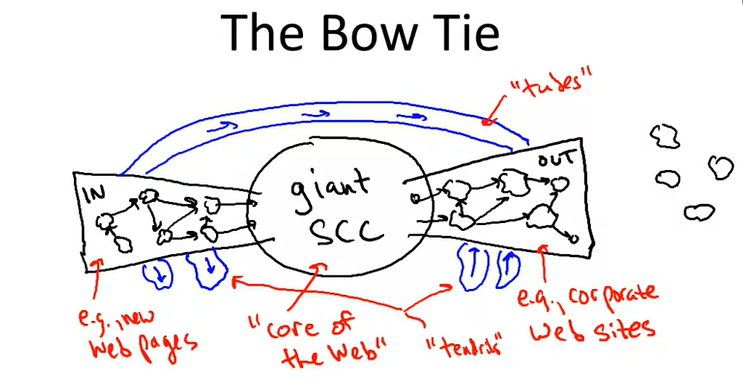 The Bow Tie
"tubes"
IN
OUT
giant
SCC
e.g., new
web pages
"core of
the web"
"tendrils"
e.g., corporate
web sites